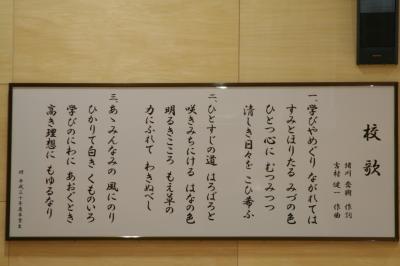 校歌
作詞
吉村 健一 作曲
一、学びやめぐり ながれては
すみとほりたる みづの色
ひとつ心に むつみつつ
清しき日々を こひ希ふ
二、ひとすじの道 はろばろと
咲きみちにける はなの色
明るきこころ もえ草の
力にふれて わきぬべし
三、あゝみんなみの 風にのり
ひかりて白き くものいろ
学びのにわに あおぐとき
高き理想に もゆるなり
平成三十年度卒業生